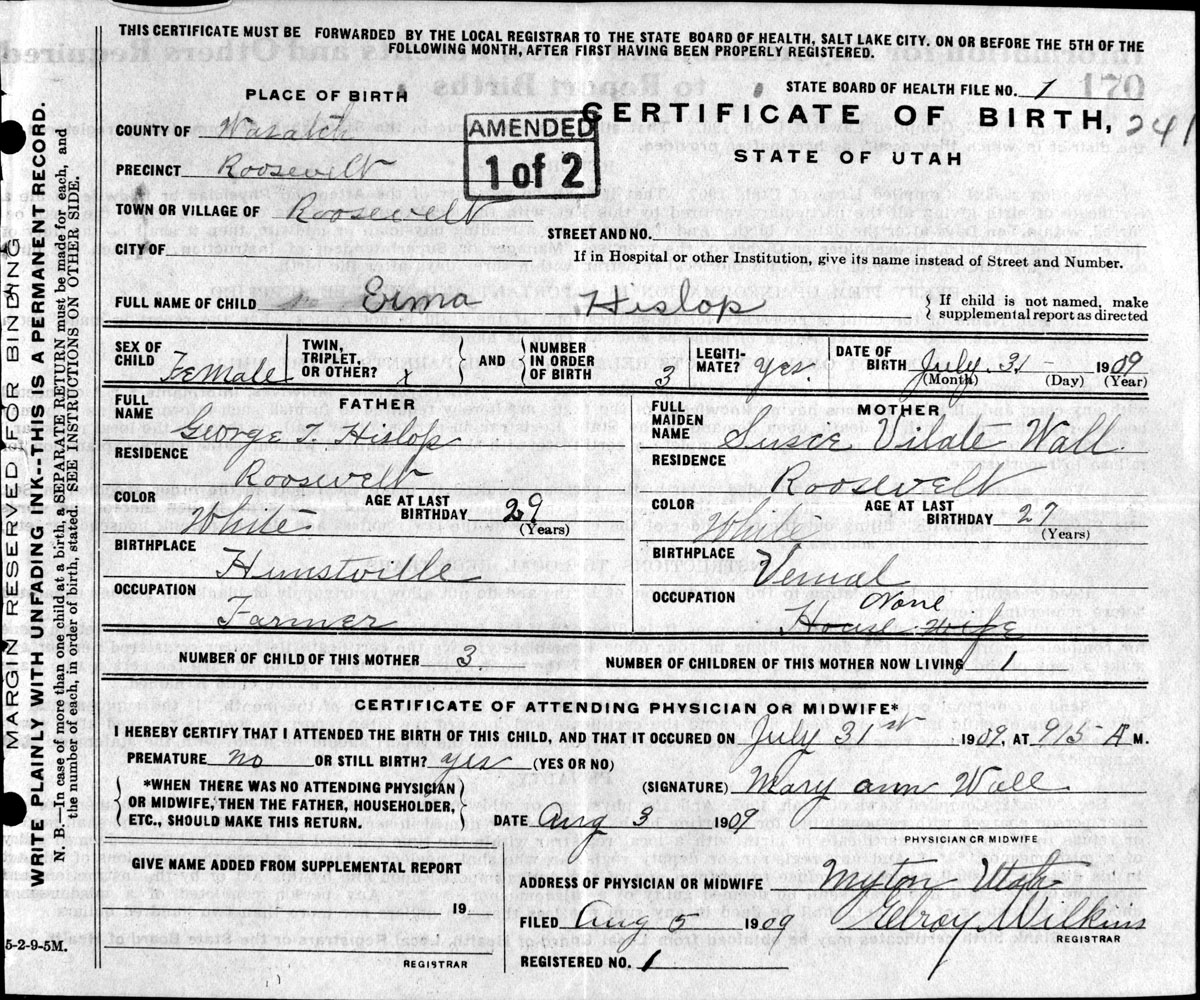 THIS CERTIFICATE MUST BE FORWARDED BY THE LOCAL REGISTRAR TO THE STATE BOARD OF HEALTH, SALT LAKE CITY. ON OR BEFORE THE 5TH OF THE
FOLLOWING MONTH, AFTER FIRST HAVING BEEN PROPERLY REGISTERED.
STATE BOARD OF HEALTH FILE NO. 1
PLACE OF BIRTH
CERTIFICATE OF BIRTH, 241
STATE OF UTAH
AMENDED
1 of 2
COUNTY OF Wasatch
PRECINCT Roosevelt
TOWN OR VILLAGE OF Roosevelt
STREET AND NO.
CITY OF
If in Hospital or other Institution, give its name instead of Street and Number.
FULL NAME OF CHILD Erma Hislop
} If child is not named, make
supplemental report as directed
SEX OF CHILD Female
TWIN, TRIPLET, OR OTHER? x } AND { NUMBER IN ORDER OF BIRTH 3
LEGITI-MATE? yes.
DATE OF BIRTH July 31 - 1909
(Month) (Day) (Year)
FATHER
FULL NAME George T. Hislop
RESIDENCE
Roosevelt
COLOR White
AGE AT LAST BIRTHDAY 29
(Years)
BIRTHPLACE
Hunstville
OCCUPATION
Farmer
MOTHER
FULL MAIDEN NAME Susce Vilate Wall
RESIDENCE
Roosevelt
COLOR White
AGE AT LAST BIRTHDAY 27
(Years)
BIRTHPLACE
Vernal
OCCUPATION None
House Wife
NUMBER OF CHILD OF THIS MOTHER 3
NUMBER OF CHILDREN OF THIS MOTHER NOW LIVING 1
CERTIFICATE OF ATTENDING PHYSICIAN OR MIDWIFE*
I HEREBY CERTIFY THAT I ATTENDED THE BIRTH OF THIS CHILD, AND THAT IT OCCURED ON July 31st, 1909, AT 915 A M.
PREMATURE no OR STILL BIRTH? yes (YES OR NO)
{ *WHEN THERE WAS NO ATTENDING PHYSICIAN
OR MIDWIFE, THEN THE FATHER, HOUSEHOLDER,
ETC., SHOULD MAKE THIS RETURN. }
(SIGNATURE) Mary ann Wall
DATE Aug 3 1909
PHYSICIAN OR MIDWIFE
GIVE NAME ADDED FROM SUPPLEMENTAL REPORT
19
REGISTRAR
ADDRESS OF PHYSICIAN OR MIDWIFE Myton Utah
FILED Aug 5 1909 Elroy Wilkins
REGISTRAR
REGISTERED NO. 1
5-2-9-5M.
MARGIN RESERVED FOR BINDING
WRITE PLAINLY WITH UNFADING INK--THIS IS A PERMANENT RECORD.
N. B.—In case of more than one child at a birth, a SEPARATE RETURN must be made for each, and
the number of each, in order of birth, stated. SEE INSTRUCTIONS ON OTHER SIDE.